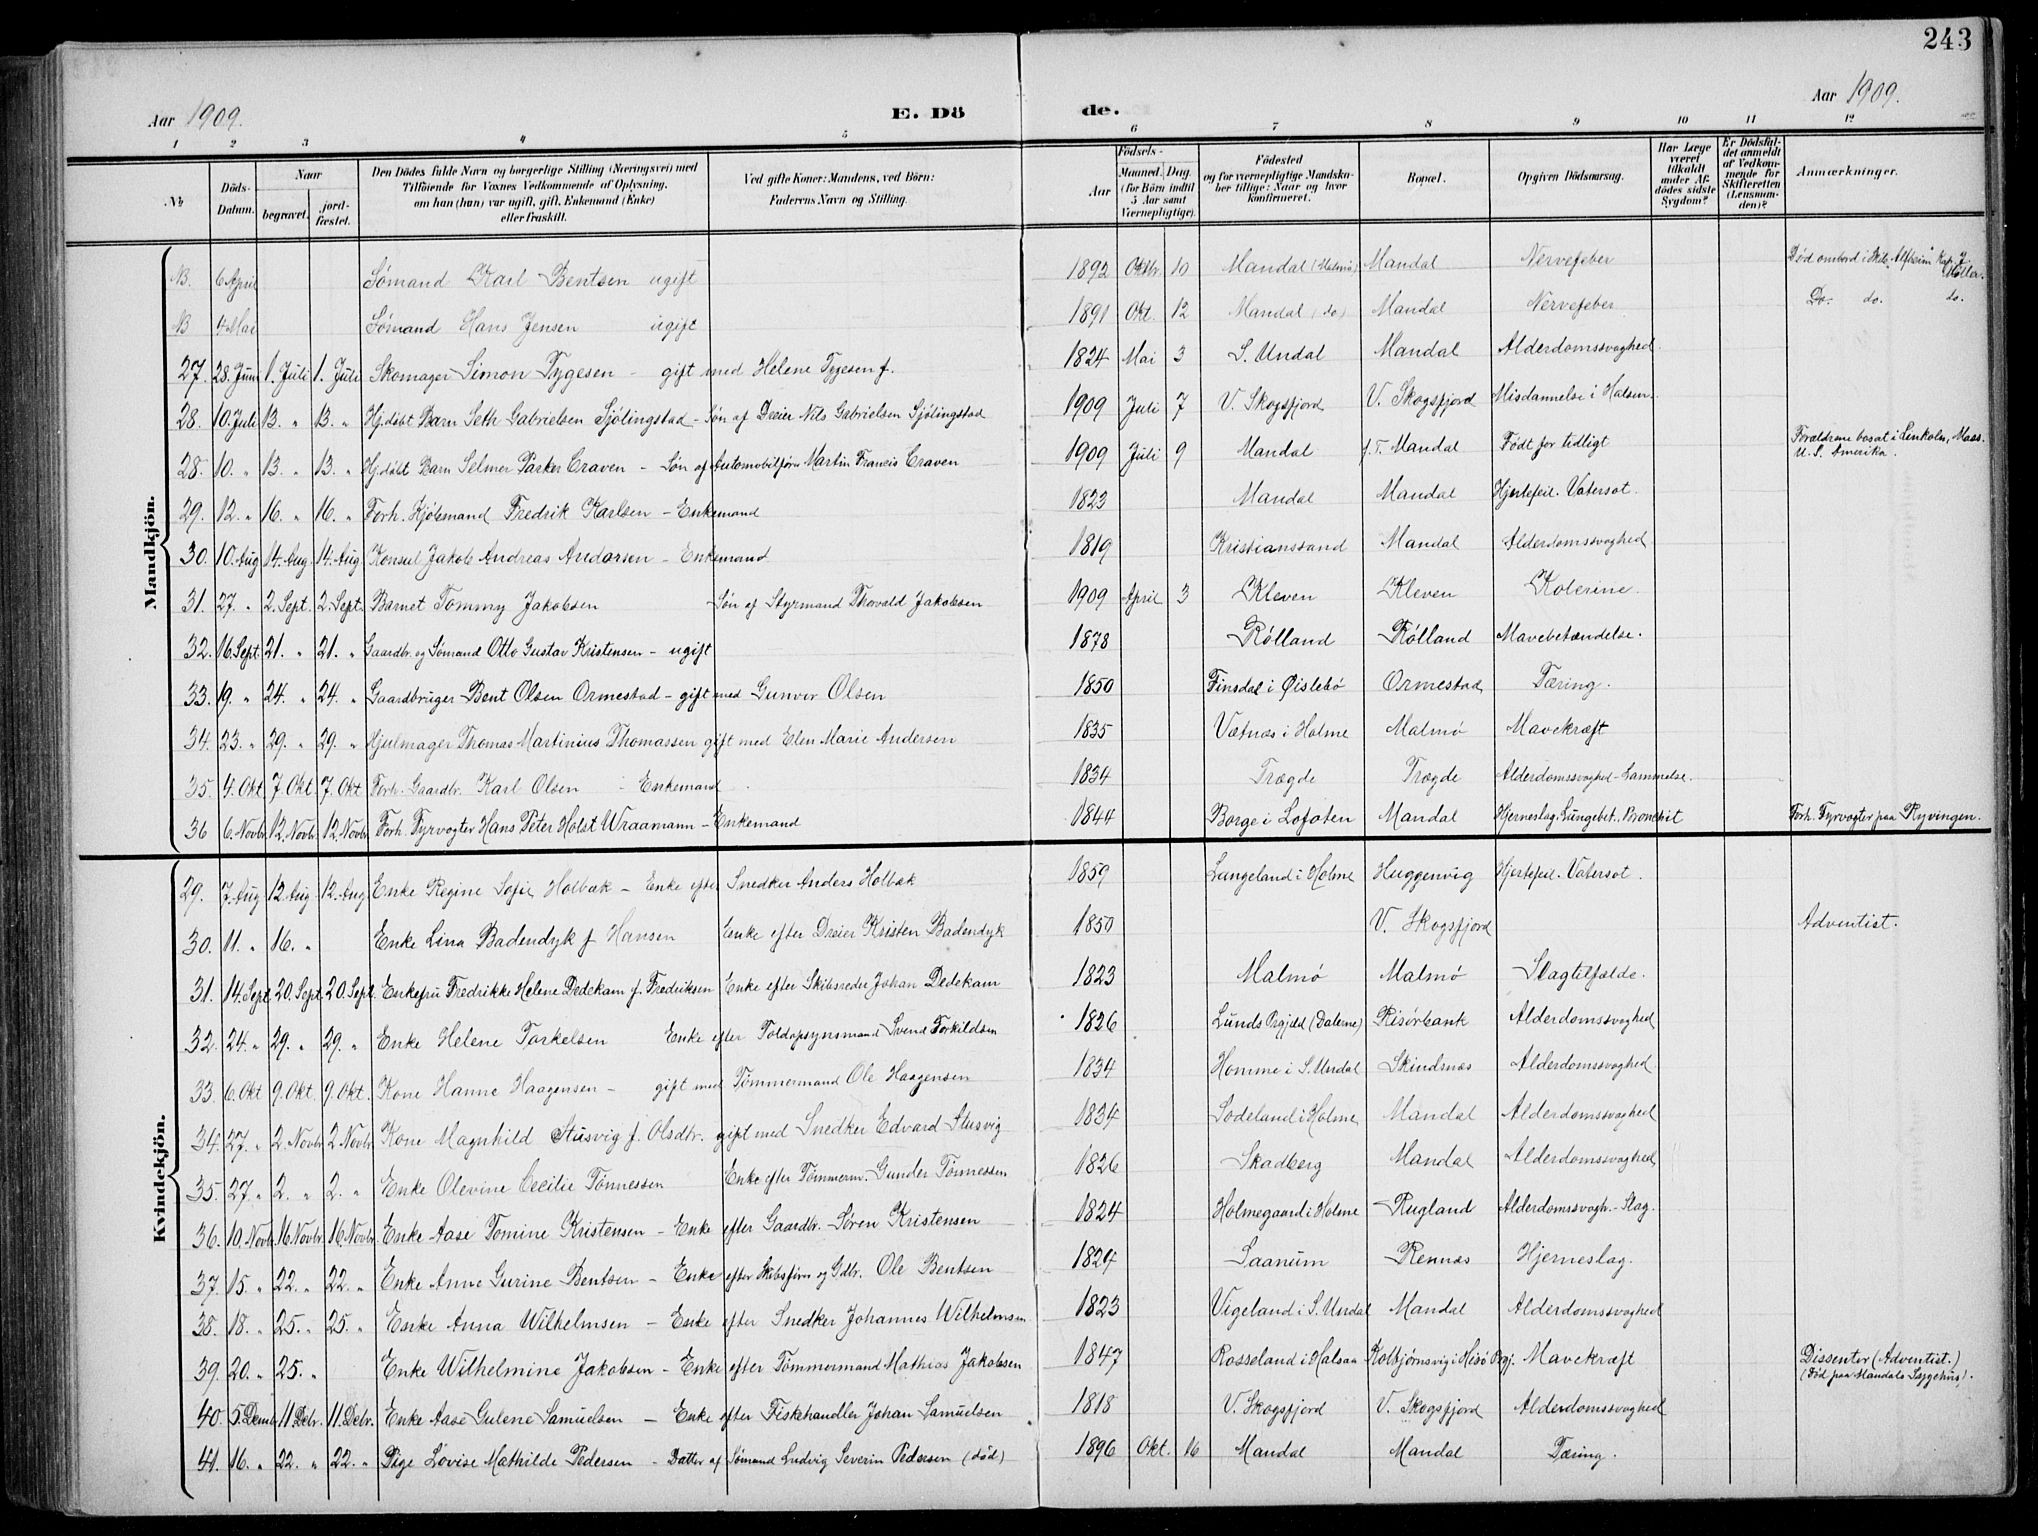 243
Aar 1909.
E. Dö
de.
Aar 1909.
1 2 3 4 5 6 7 8 9 10 11 12
№
Döds-Datum.
Naar
begravet.
jord-fæstet.
Den Dödes fulde Navn og borgerlige Stilling (Næringsvei) med
Tilföiende for Voxnes Vedkommende af Oplysning,
om han (hun) var ugift, gift, Enkemand (Enke)
eller fraskilt.
Ved gifte Koner: Mandens, ved Börn:
Faderens Navn og Stilling.
Födsels-
Aar
Maaned. Dag.
(for Börn indtil
5 Aar samt
Værnepligtige).
Födested
og for værnepligtige Mandska-
ber tillige: Naar og hvor
konfirmeret.
Bopæl.
Opgiven Dödsaarsag.
Har Læge
været
tilkaldt
under Af-
dödes sidste
Sygdom?
Er Dödsfal-
det anmeldt
af Vedkom-
mende for
Skifteretten
(Lensman-
den)?
Anmærkninger.
Mandkjön.
NB. 6 April Sømand Karl Bentsen ugift 1892 Oktbr. 10 Mandal (Malmø) Mandal Nervefeber Død ombord i Skib. Alfheim Kap. J. Møller.
NB 4 Mai Sømand Hans Jensen ugift 1891 Okt. 12 Mandal (do) Mandal Nervefeber Do. do. do.
27. 28. Juni 1. Juli 1. Juli Skomager Simon Tygesen - gift med Helene Tygesen f. 1824 Mai 3 S. Undal Mandal Alderdomssvaghed.
28. 10. Juli 13. " 13. " Hj.døbt Barn Seth Gabrielsen Sjölingstad - Søn af Dreier Nils Gabrielsen Sjölingstad 1909 Juli 7 V. Skogsfjord V. Skogsfjord Misdannelse i Halsen.
28. 10. " 13. " 13. " Hj.døbt Barn Selmer Parker Craven - Søn af Automobilfører Martin Francis Craven 1909 Juli 9 Mandal f. T. Mandal Født for tidligt Forældrene bosat i Linkoln, Mass. U. S. Amerika.
29. 12. " 16. " 16. " Forh. Kjøbmand Fredrik Karlsen - Enkemand 1823 Mandal Mandal Hjertefeil. Vatersot.
30. 10. Aug 14. Aug 14. Aug Konsul Jakob Andreas Andorsen - Enkemand 1819 Kristianssand Mandal Alderdomssvaghed
31. 27. " 2. Sept. 2. Sept. Barnet Tommy Jakobsen Søn af Styrmand Thorvald Jakobsen 1909 April 3 Kleven Kleven Kolerine.
32. 16. Sept. 21. " 21. " Gaardbr. og Sømand Otto Gustav Kristensen - ugift 1878 Rølland Rølland Mavebetændelse.
33. 19. " 24. " 24. " Gaardbruger Bent Olsen Ormestad - gift med Gunvor Olsen 1850 Finsdal i Øislebø Ormestad Tæring.
34. 23. " 29. " 29. " Hjulmager Thomas Martinius Thomassen gift med Elen Marie Andersen 1835 Vatnas i Holme Malmø Mavekræft
35. 4. Okt 7. Okt 7. Okt Forh. Gaardbr. Karl Olsen - Enkemand 1834 Trægde Trægde Alderdomssvaghed - Lammelse.
36 6. Novbr 12. Novbr 12. Novbr Forh. Fyrvogter Hans Peter Holst Wraamann - Enkemand 1844 Borge i Lofoten Mandal Hjerneslag. Lungebet. Bronchit Forh. Fyrvogter paa Ryvingen.
Kvindekjön.
29. 7. Aug 12 Aug 12. Aug Enke Regine Sofie Holbæk - Enke efter Snedker Anders Holbæk 1859 Lungeland i Holme Huggenvig Hjertefeil. Vatersot.
30. 11. " 16. " Enke Lina Badendyk f Hansen Enke efter Dreier Kristen Badendyk 1850 V. Skogsfjord Adventist.
31. 14. Sept. 20. Sept. 20. Sept. Enkefru Fredrikke Helene Dedekam f. Fredriksen Enke efter Skibsreder Johan Dedekam 1823 Malmø Malmø Slagtilfælde.
32. 24. " 29. " 29. " Enke Helene Torkelsen Enke efter Toldopsynsmand Svend Torkildsen 1826 Lunds Prgjeld (Dalerne) Risørbank Alderdomssvaghed
33. 6. Okt 9. Okt. 9. Okt. Kone Hanne Haagensen - gift med Tømmermand Ole Haagensen 1834 Homme i S. Undal Skindnæs Alderdomssvaghed.
34. 27. " 2. Novbr 2. Novbr Kone Magnhild Stusvig f. Olsdtr. gift med Snedker Edvard Stusvig 1834 Sodeland i Holme Mandal Alderdomssvaghed
35. 27. " 2. " 2. " Enke Olevine Cecilie Tønnessen Enke efter Tømmerm. Gunder Tønnessen 1826 Skadberg Mandal Alderdomssvaghed
36. 10. Novbr 16. Novbr 16. Novbr Enke Aase Tomine Kristensen - Enke efter Gaardbr. Søren Kristensen 1824 Holmegaard i Holme Rugland Alderdomssvagh. - Slag.
37. 15. " 22. " 22. " Enke Anne Gurine Bentsen - Enke efter Skibsfører og Gdbr. Ole Bentsen 1824 Saanum Rennæs Hjerneslag.
38. 18. " 25. " 25. " Enke Anna Wilhelmsen - Enke efter Snedker Johannes Wilhelmsen 1823 Vigeland i S. Undal Mandal Alderdomssvaghed
39. 20. " 25. " Enke Wilhelmine Jakobsen - Enke efter Tømmermand Mathias Jakobsen 1847 Rosseland i Halsaa Kolbjørnsvig i Hisø Prgj. Mavekræft Dissenter (Adventist.) (Død paa Mandals Sygehus).
40. 5. Decmb 11 Debr. 11. Debr. Enke Aase Gulene Samuelsen - Enke efter Fiskehandler Johan Samuelsen 1818 V. Skogsfjord V. Skogsfjord Alderdomssvaghed
41. 16. " 22. " 22. " Pige Lovise Mathilde Pedersen - Datter af Sømand Ludvig Severin Pedersen (død) 1896 Okt. 16 Mandal Mandal Tæring.